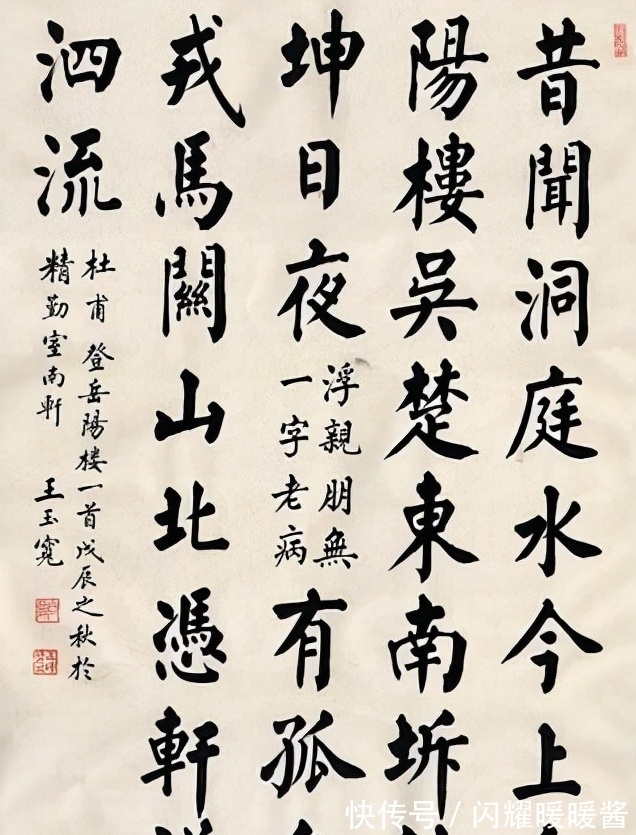 昔聞洞庭水今上
陽樓吳楚東南坼
坤日夜
浮親朋無
一字老病
有孤
戎馬關山北憑軒
泗流
杜甫登岳陽樓一首戊辰之秋於
精勤室南軒
王玉寬
快传号 / 闪耀暖暖酱